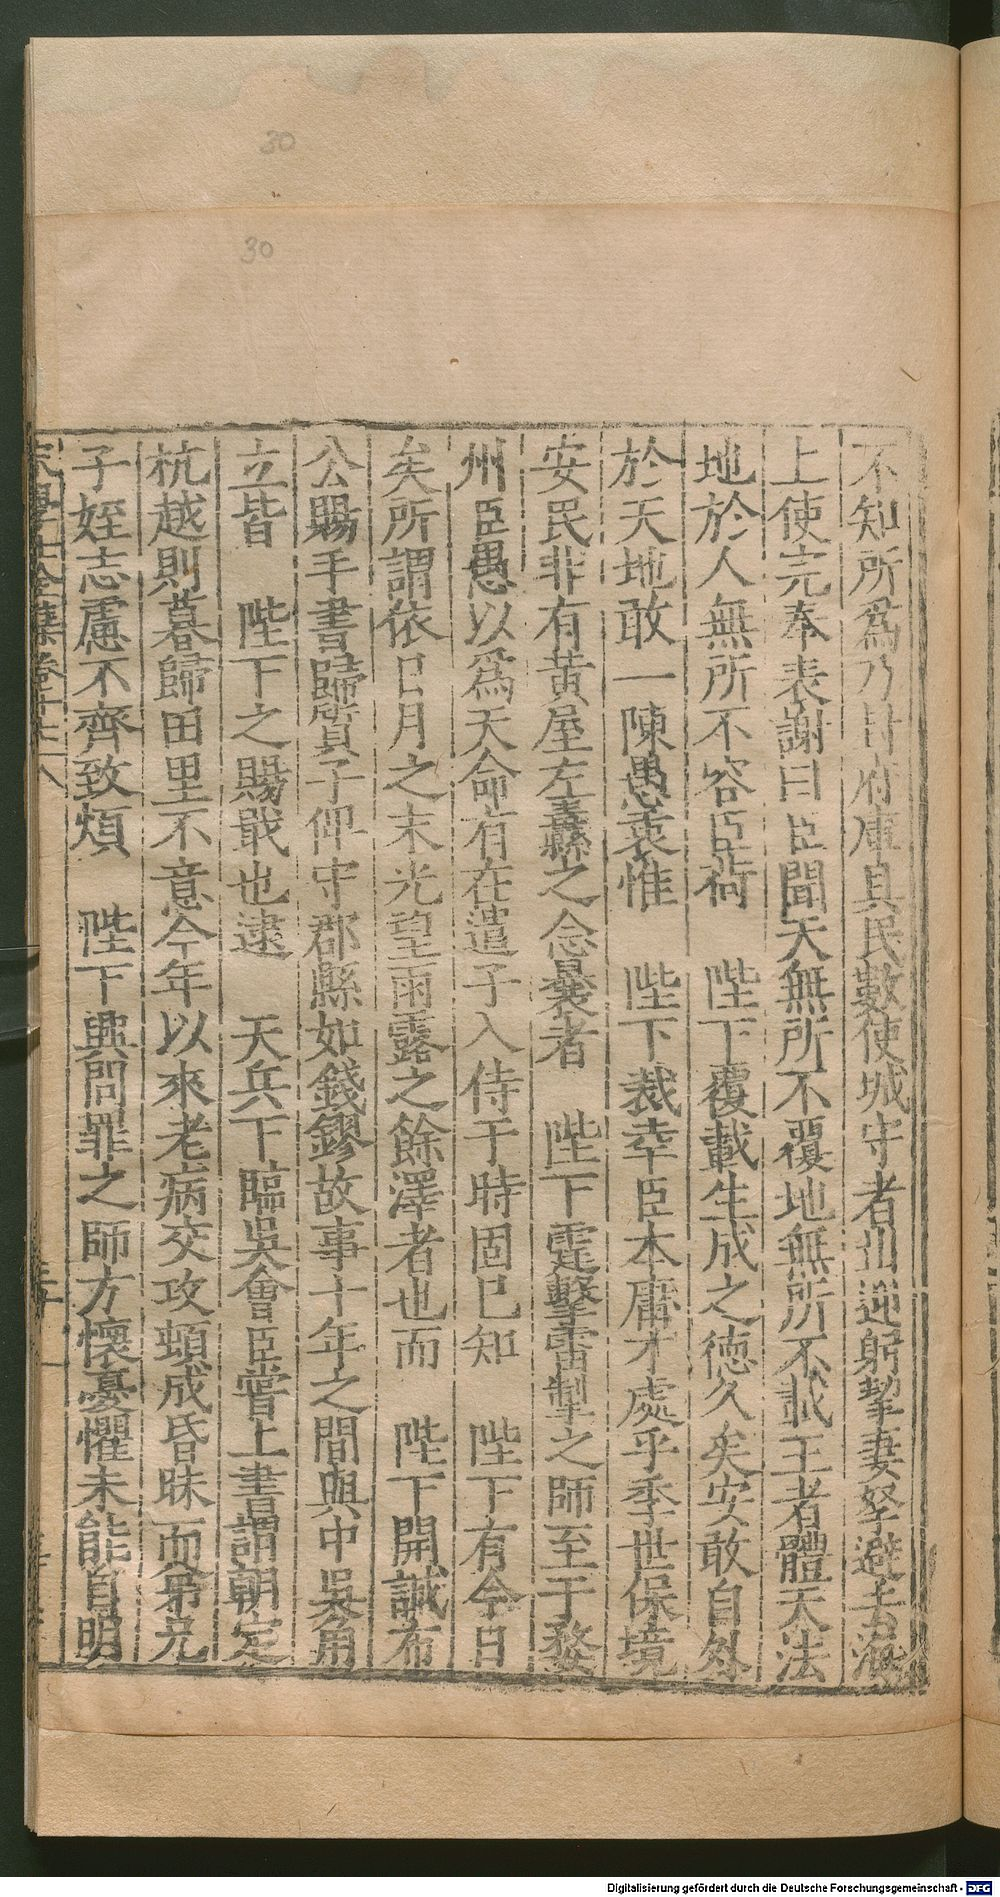 30
30
不知所爲乃封府庫具民數使城守者出迎躬挈妻孥避去海
上使完奉表謝曰臣聞天無所不覆地無所不載王者體天法
地於人無所不容臣荷 陛下覆載生成之德久矣安敢自外
於天地敢一陳愚衷惟 陛下裁幸臣本庸才處乎季世保境
安民非有黃屋左纛之念曩者 陛下霆擊雷掣之師至于婺
州臣愚以爲天命有在遣子入侍于時固已知 陛下有今日
矣所謂依日月之末光望雨露之餘澤者也而 陛下開誠布
公賜手書歸質子俾守郡縣如錢鏐故事十年之間與中吳角
立皆 陛下之賜戢也逮 天兵下臨吳會臣嘗上書謂朝定
杭越則暮歸田里不意今年以來老病交攻頓成昏昧而弟兄
子姪志慮不齊致煩 陛下興問罪之師方懷憂懼未能自明
宋學士全集卷十八
Digitalisierung gefördert durch die Deutsche Forschungsgemeinschaft - DFG